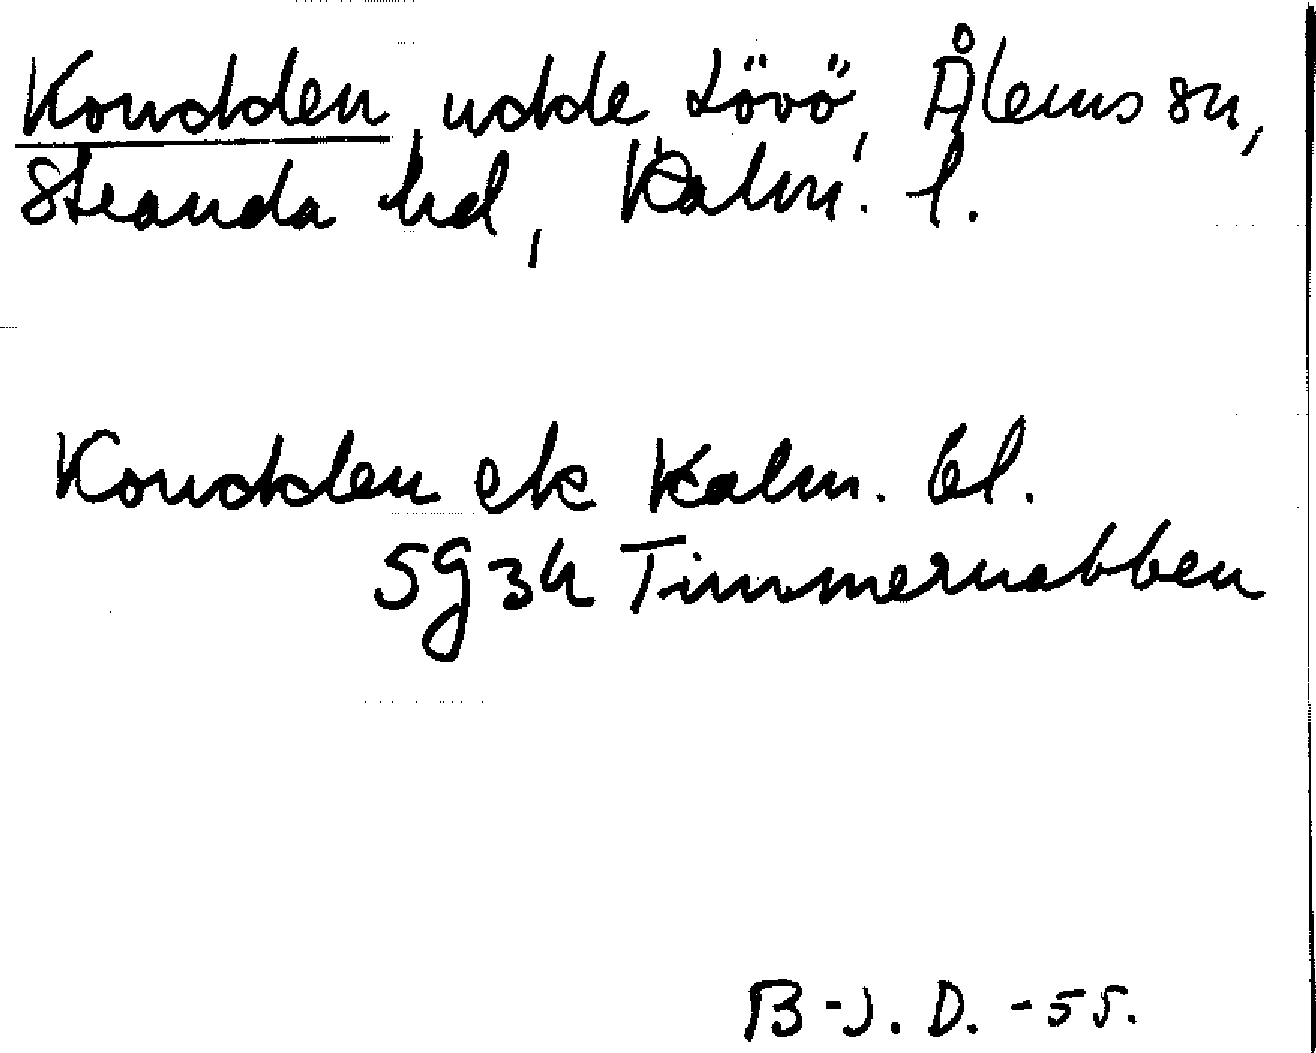 Koudden, udde Lövö, Ålems sn,
Stranda hd, Kalm. l.
Koudden ek Kalm. bl.
5g34 Timmernabben
B-J. D. -55.